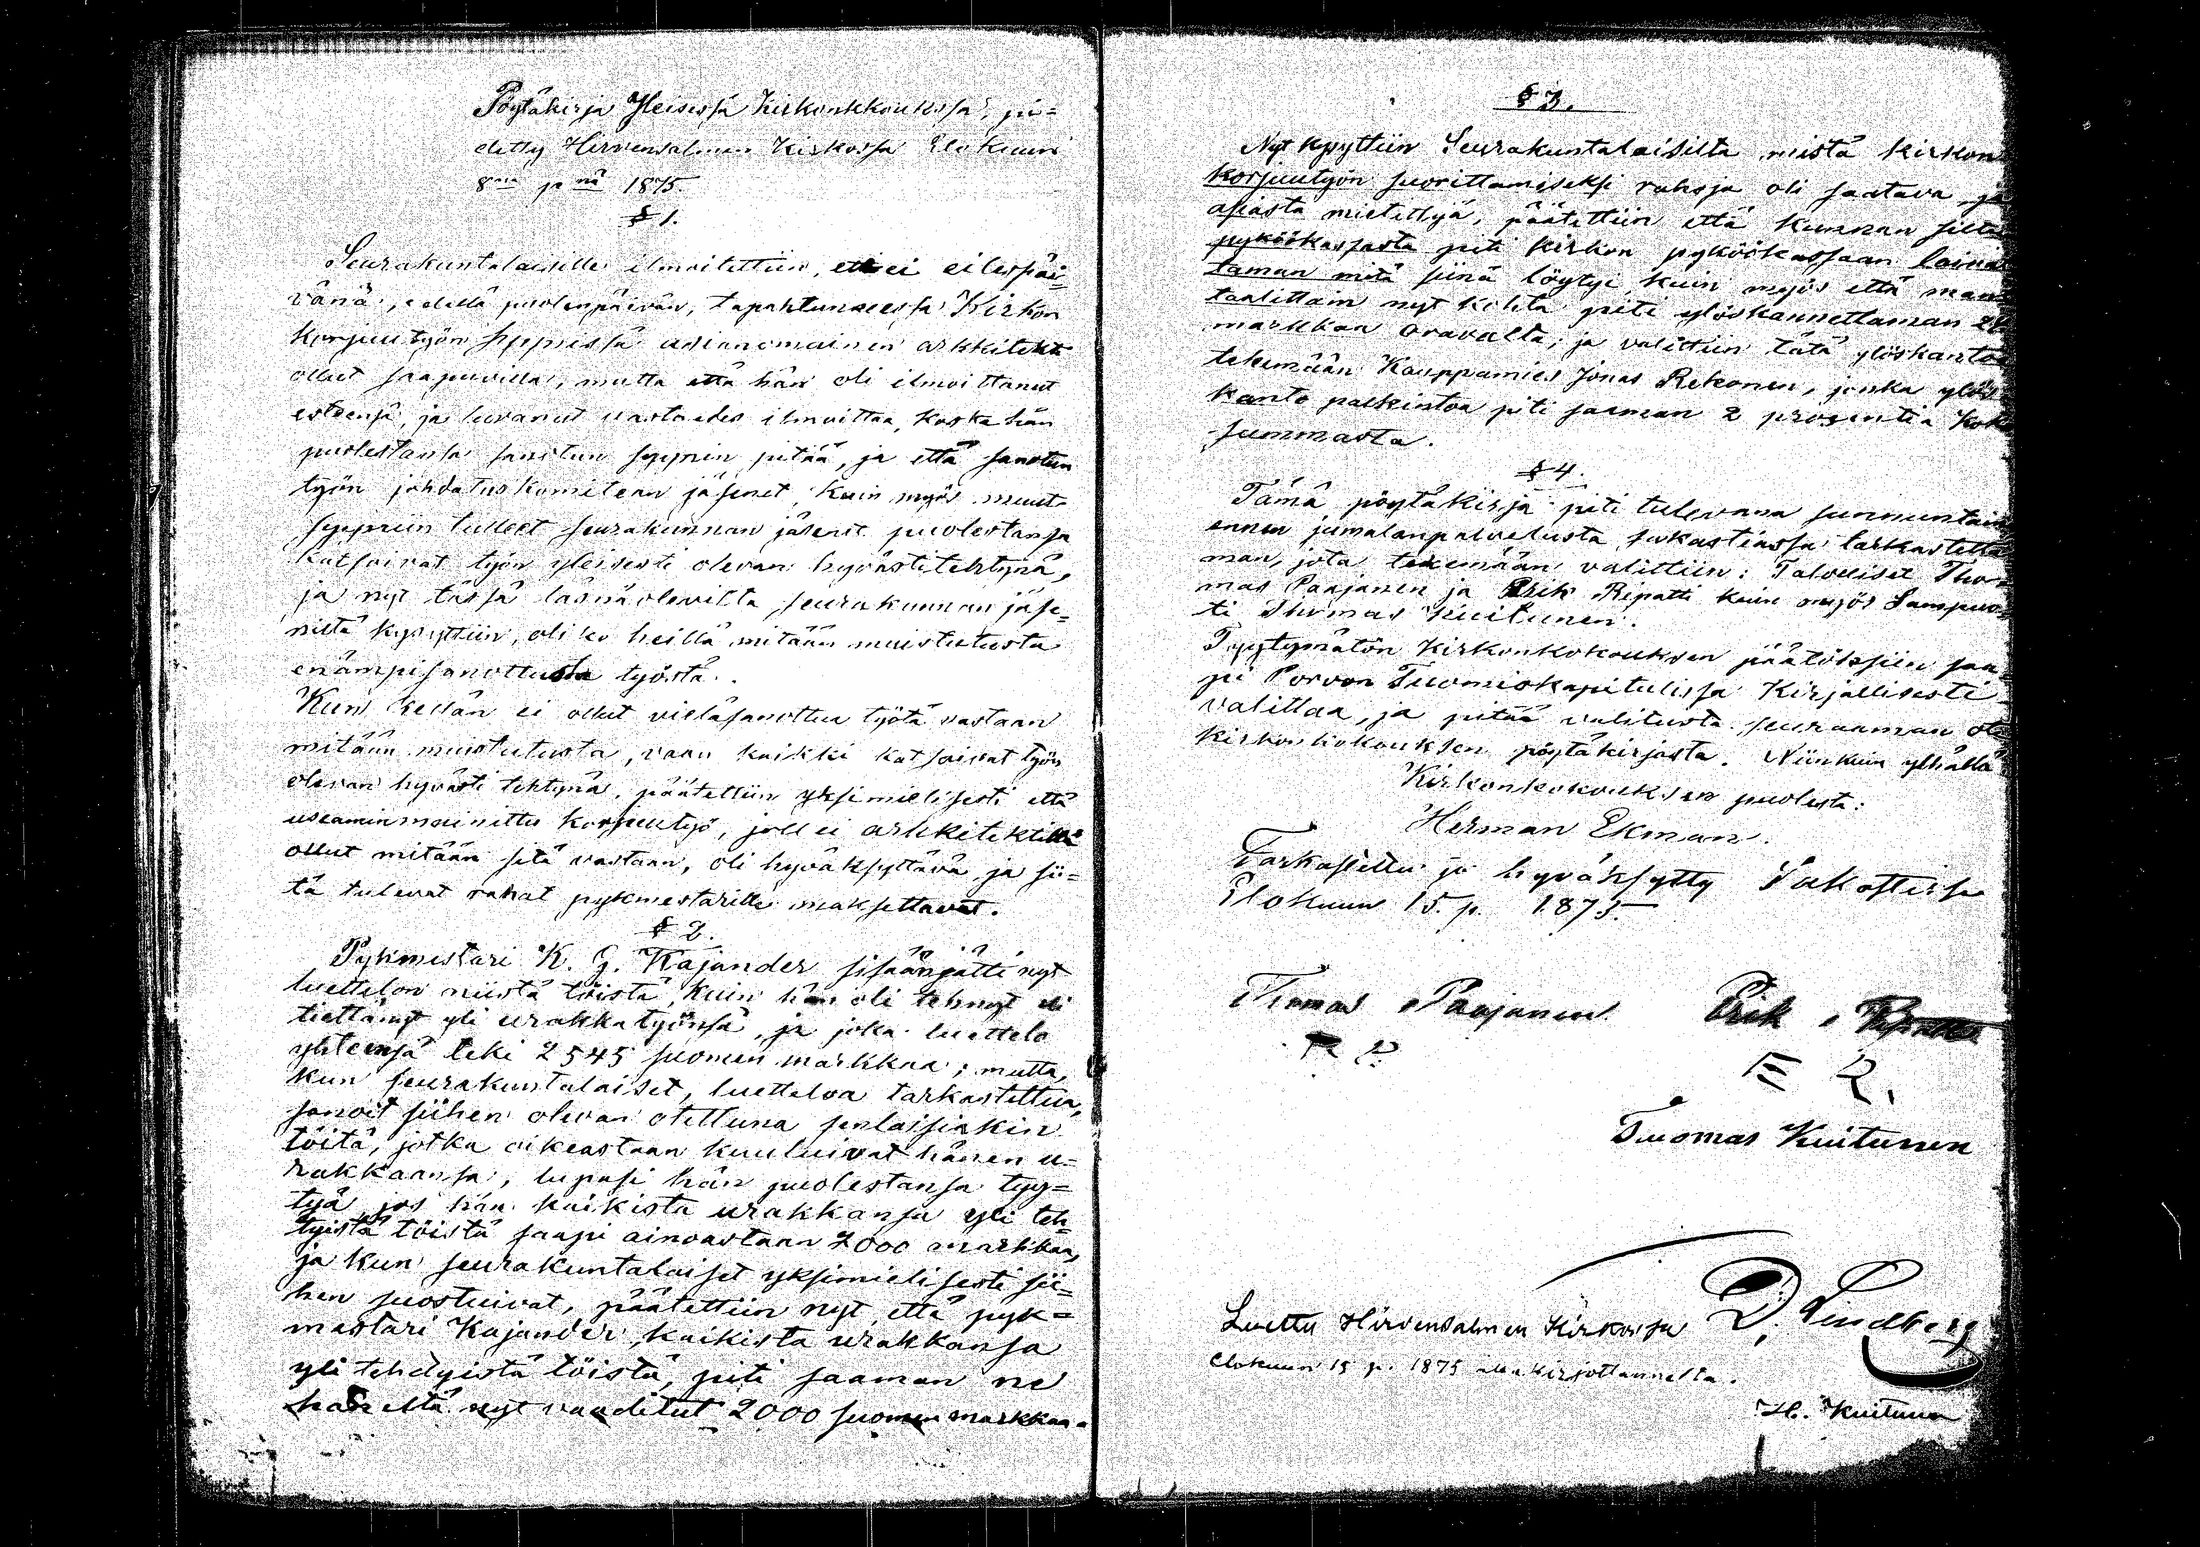 Pöytäkirja Yleisessä Kirkonkkouksssa, pi=
detty Hirvensalmen Kirkossa Elokuun
8na p:nä 1875.
§ 1.
Seurakuntalaisille ilmoitettiin, ettei eilespäi=
vänä, edellä puolenpäivän, tapahtuneessa Kirkon
korjuutyön syynissä asianomainen arkkitehti
ollut saapuvilla, mutta että hän oli ilmoittanut
esteensä, ja luvanut vastaedes ilmoittaa, koska hän
puolestansa sanotun syynin pitää, ja että sanotun
työn johdatuskomitean jäsenet, kuin myös muut
syyniin tulleet seurakunnan jäsenet puolestansa
katsoivat työn yleisesti olevan hyvästi tehtynä,
ja nyt tässä läsnäolevilta seurakunnan jäse=
niltä kysyttiin, oliko heillä mitään muistutusta
enämpisanottusta työstä.
Kun kellän ei ollut vieläsanottua työtä vastaan
mitään muistutusta, vaan kaikki katsoivat työn
olevan hyvästi tehtynä, päätettiin yksimielisesti että
useaminmainittu korjuutyö, joll ei arkkitektilla
ollut mitään sitä vastaan, oli hyväksyttävä ja sii=
tä tulevat rahat pykmestarille maksettavat.
§ 2.
Pykmestari K. G. Kajander sisäänjätti nyt
luettelon niistä töistä, kuin hän oli tehnyt eli
tiettänyt yli urakkatyönsä, ja joka luettelo
yhteensä teki 2545 suomen markkaa; mutta,
kun seurakuntalaiset, luetteloa tarkastettua,
sanoit siihen olevan otettuna senlaisiakin
töitä, jotka oikeastaan kuuluivat hänen u=
rakkaansa, lupasi hän puolestansa tyy=
tyä, jos hän kaikista urakkansa yli teh=
tyistä töistä saapi ainoastaan 2000 markkaa,
ja kun seurakuntalaiset yksimielisesti sii=
hen suostuivat, päätettiin nyt, että pyk=
mästari Kajander, kaikista urakkansa
yli tehdyistä töistä, piti saaman ne
häneltä nyt vaaditut 2000 suomen markkaa.
§ 3.
Nyt kysyttiin Seurakuntalaisilta mistä kirkon
korjuutyön suorittamiseksi rahoja oli saatava ja
asiasta mietittyä, päätettiin että kunnan silta
pyköökassasta piti kirkon pyköökassaan laina
taman mitä siinä löytyi, kuin myös että man
taalittain nyt kohta piti ylöskannettaman
markkaa oravalta; ja valittiin tätä ylöskantoa
tekemään Kauppamies Jonas Rekonen, jonka ylös
kanto palkintoa piti saaman 2 prosentia koko
summasta.
§ 4.
Tämä pöytäkirja piti tulevana sunnuntaina
ennen jumalanpalvelusta sakastiassa tarkastetta
man, jota tekemään valittiin: Talolliset Tho=
mas Paajanen ja Erik Repatti kuin myös Lampuo=
ti Thomas Kuitunen.
Tyytymätön kirkonkokouksen päätöksiin saa
pi Porvon Tuomiokapitulissa Kirjallisesti
valittaa, ja pitää valitusta seuraaman ote
kirkonkokouksen pöytäkirjasta. Niinkuin ylhällä
Kirkonkokouksen puolesta:
Herman Ekman.
Tarkastettu ja hyväksytty Sakastissa
Elokuun 15. p. 1875.
Tuomas Paajanen Erik
E R.
Tuomas Kuitunen
D. Lindberg
Luettu Hirvensalmen Kirkossa
Elokuun 15 p. 1875 allakirjottannelta.
H. Kuitunen